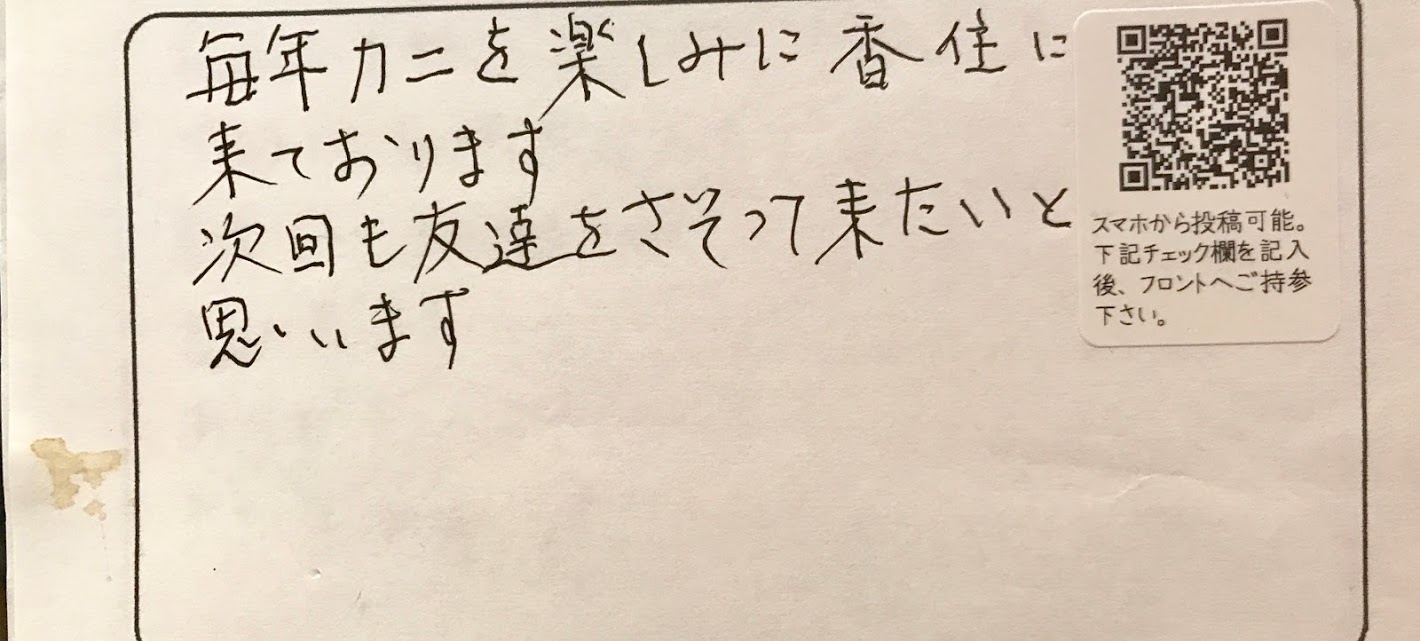 毎年カニを楽しみに香住に
来ております
次回も友達をさそって来たいと
思います
スマホから投稿可能。
下記チェック欄を記入
後、フロントへご持参
下さい。